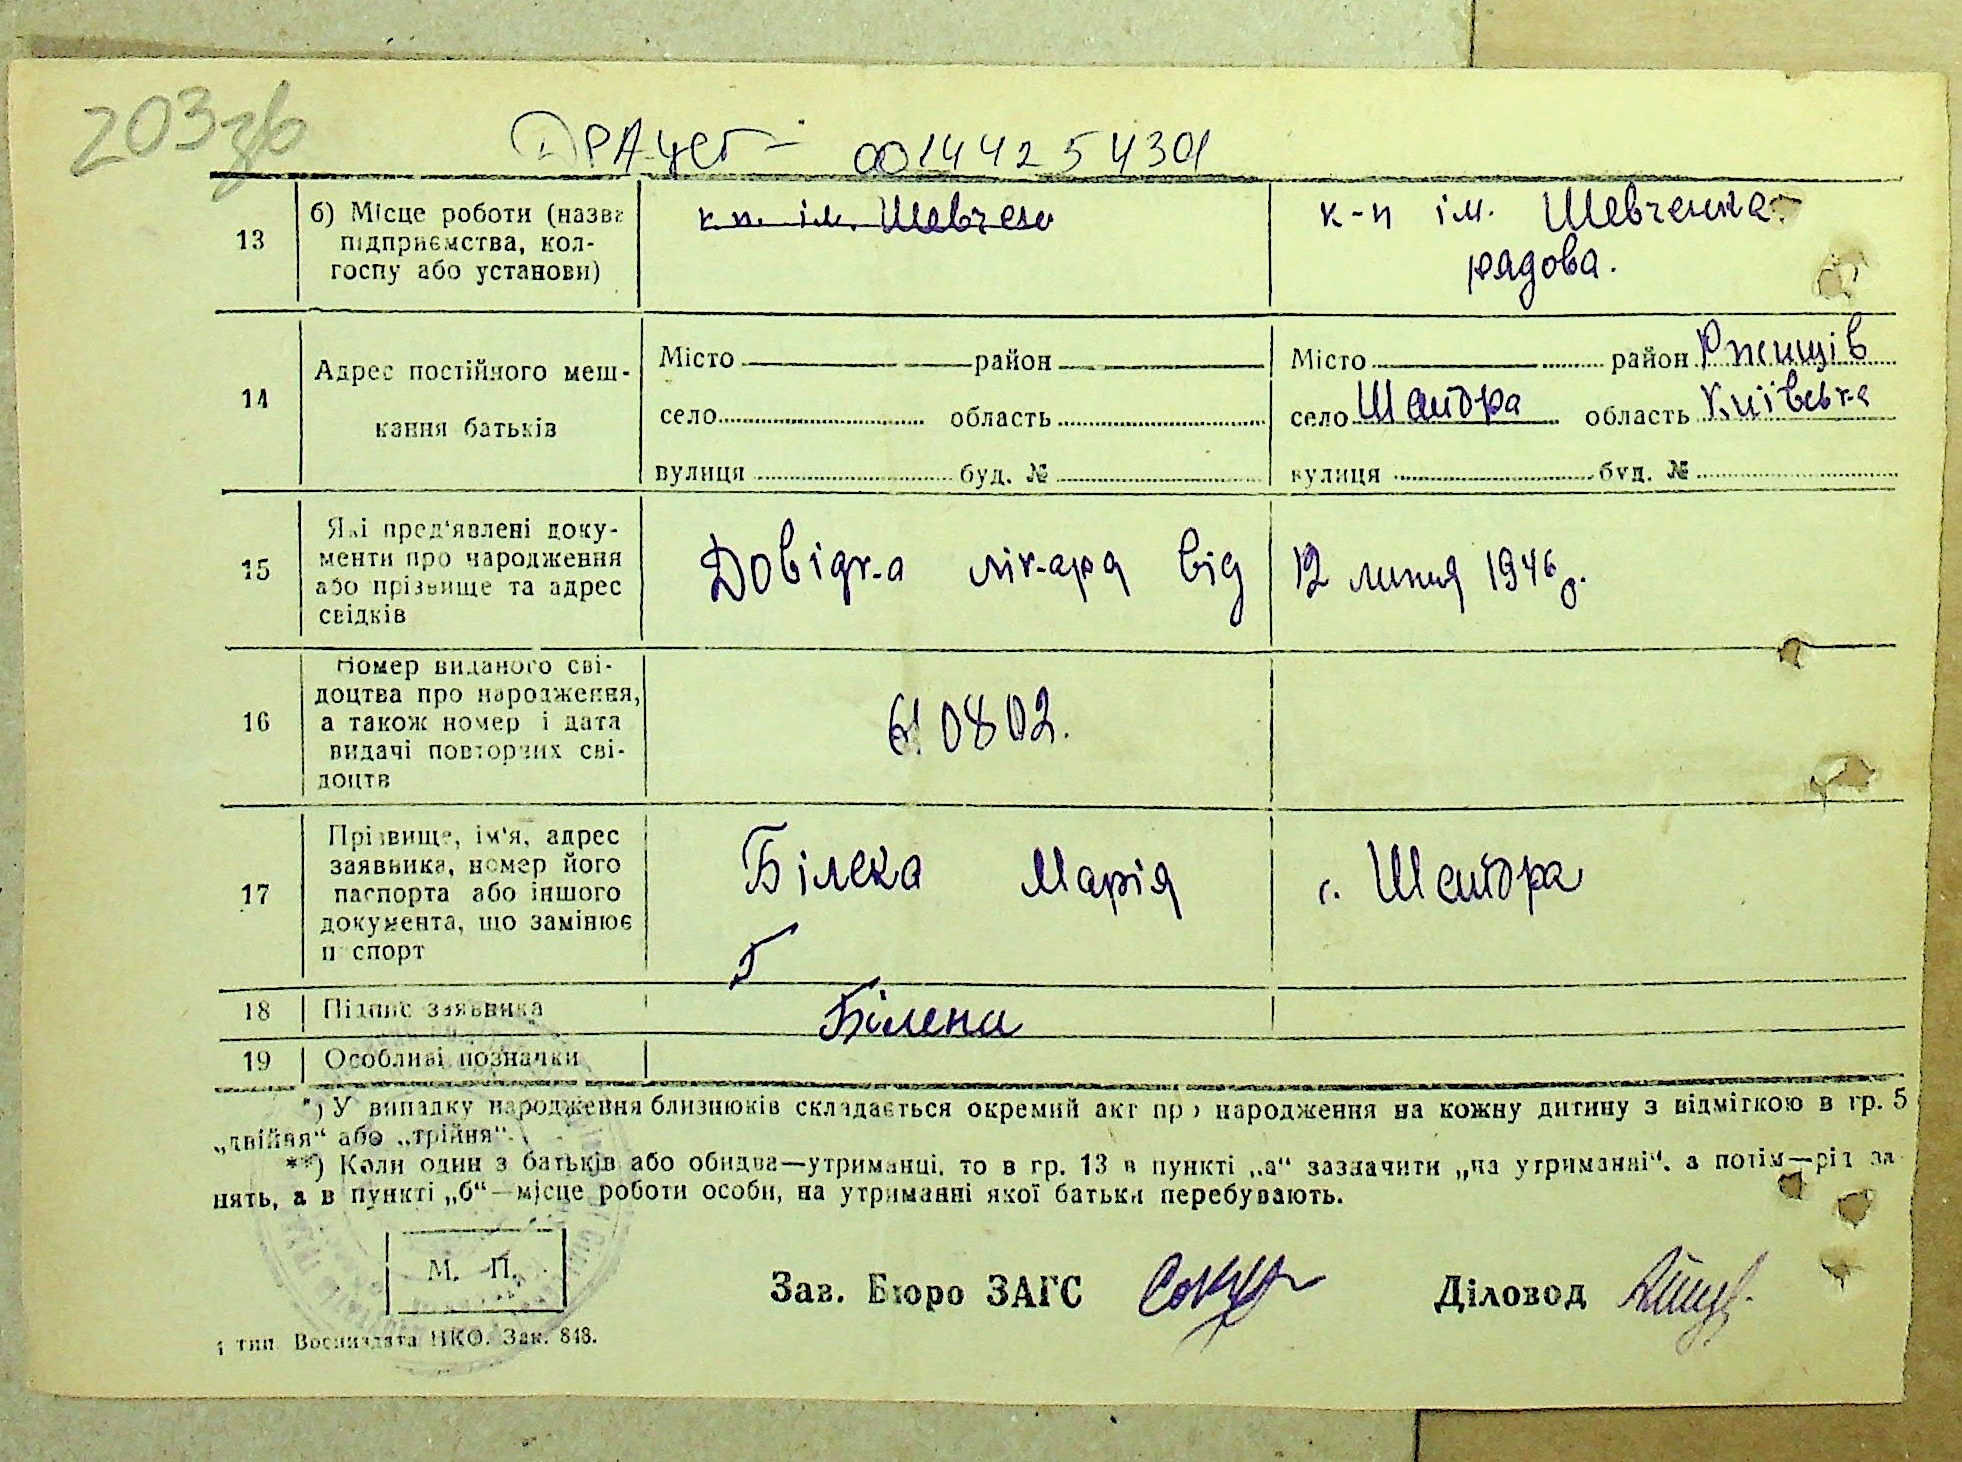 203зв
ДРАЦСГ - 00144254301
13 б) Місце роботи (назва підприємства, колгоспу або установи)
к-п. ім. Шевчен
к-п ім. Шевченка.
рядова.
14 Адрес постійного мешкання батьків
Місто район
село область
вулиця буд. №
Місто район Ржищів
село Шандра область Київська
вулиця буд. №
15 Які пред'явлені документи про народження або прізвище та адрес свідків
Довідка лікаря від 12 липня 1946 р.
16 Номер виданого свідоцтва про народження, а також номер і дата видачі повторних свідоцтв
610802.
17 Прізвище, ім'я, адрес заявника, номер його паспорта або іншого документа, що замінює паспорт
Білека Марія с. Шандра
18 Підпис заявника
19 Особливі позначки
*) У випадку народження близнюків складається окремий акт про народження на кожну дитину з відміткою в гр. 5
„двійня“ або „трійня“.
**) Коли один з батьків або обидва—утриманці, то в гр. 13 в пункті „а“ зазначити „на утриманні“, а потім—рід за-
нять, а в пункті „б“—місце роботи особи, на утриманні якої батьки перебувають.
М. П.
Зав. Бюро ЗАГС
Діловод
1 тип. Воениздата НКО. Зак. 848.